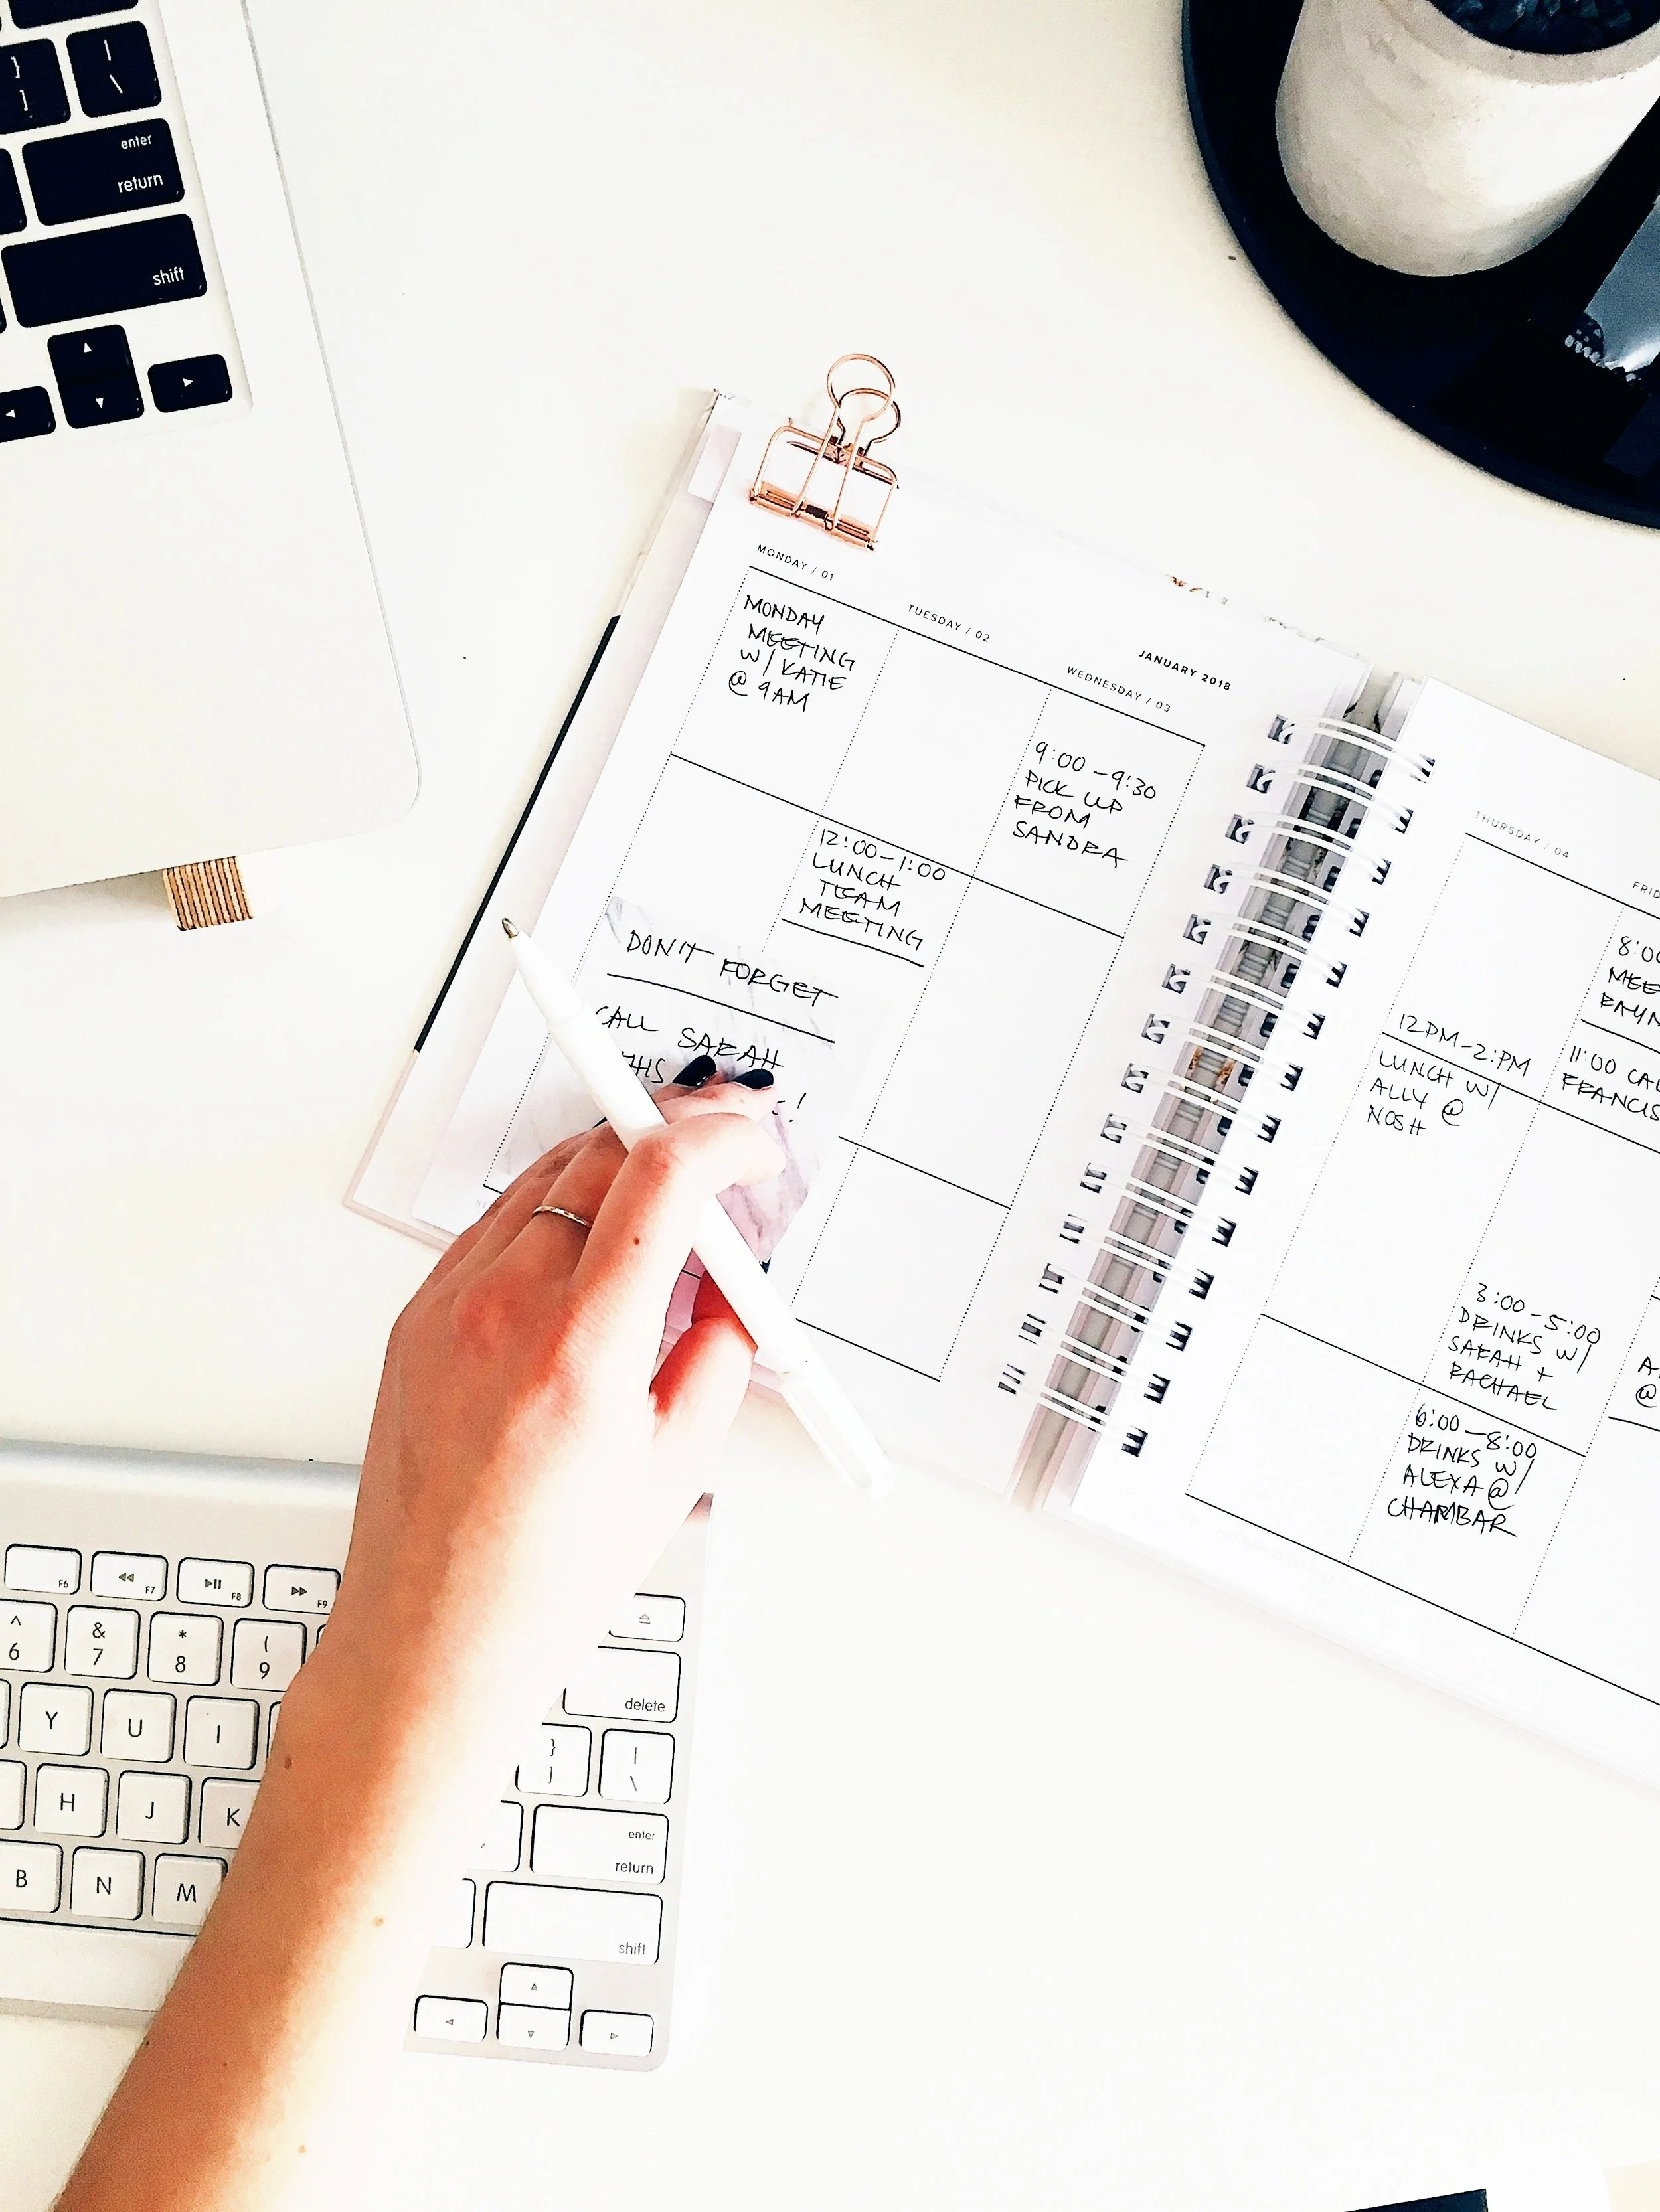 enter
return
shift
JANUARY 2018
MONDAY / 01
MONDAY
MEETING
W/ KATIE
@ 9AM
DON'T FORGET
CALL SARAH
TUESDAY / 02
12:00-1:00
LUNCH
TEAM
MEETING
WEDNESDAY / 03
9:00-9:30
PICK UP
FROM
SANDRA
THURSDAY / 04
12PM-2:PM
LUNCH W/
ALLY @
NOSH
8:00
11:00
FRANCIS
3:00-5:00
DRINKS W/
SARAH +
RACHAEL
6:00-8:00
DRINKS W/
ALEXA @
CHAMBAR
@
F6 F7 F8 F9
^ & * (
6 7 8 9
delete
Y U I
} |
] \
H J K
enter
return
B N M
shift